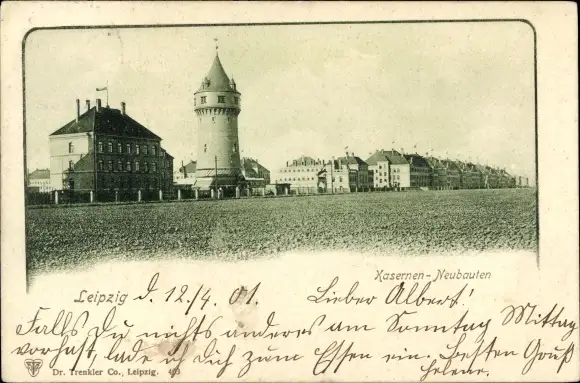 Kasernen-Neubauten
Leipzig d. 12./4. 01. Lieber Albert!
Falls Du nichts anderes am Sonntag Mittag
vorhast, lade ich Dich zum Essen ein. Besten Gruß
Helene.
Dr. Trenkler Co., Leipzig. 43